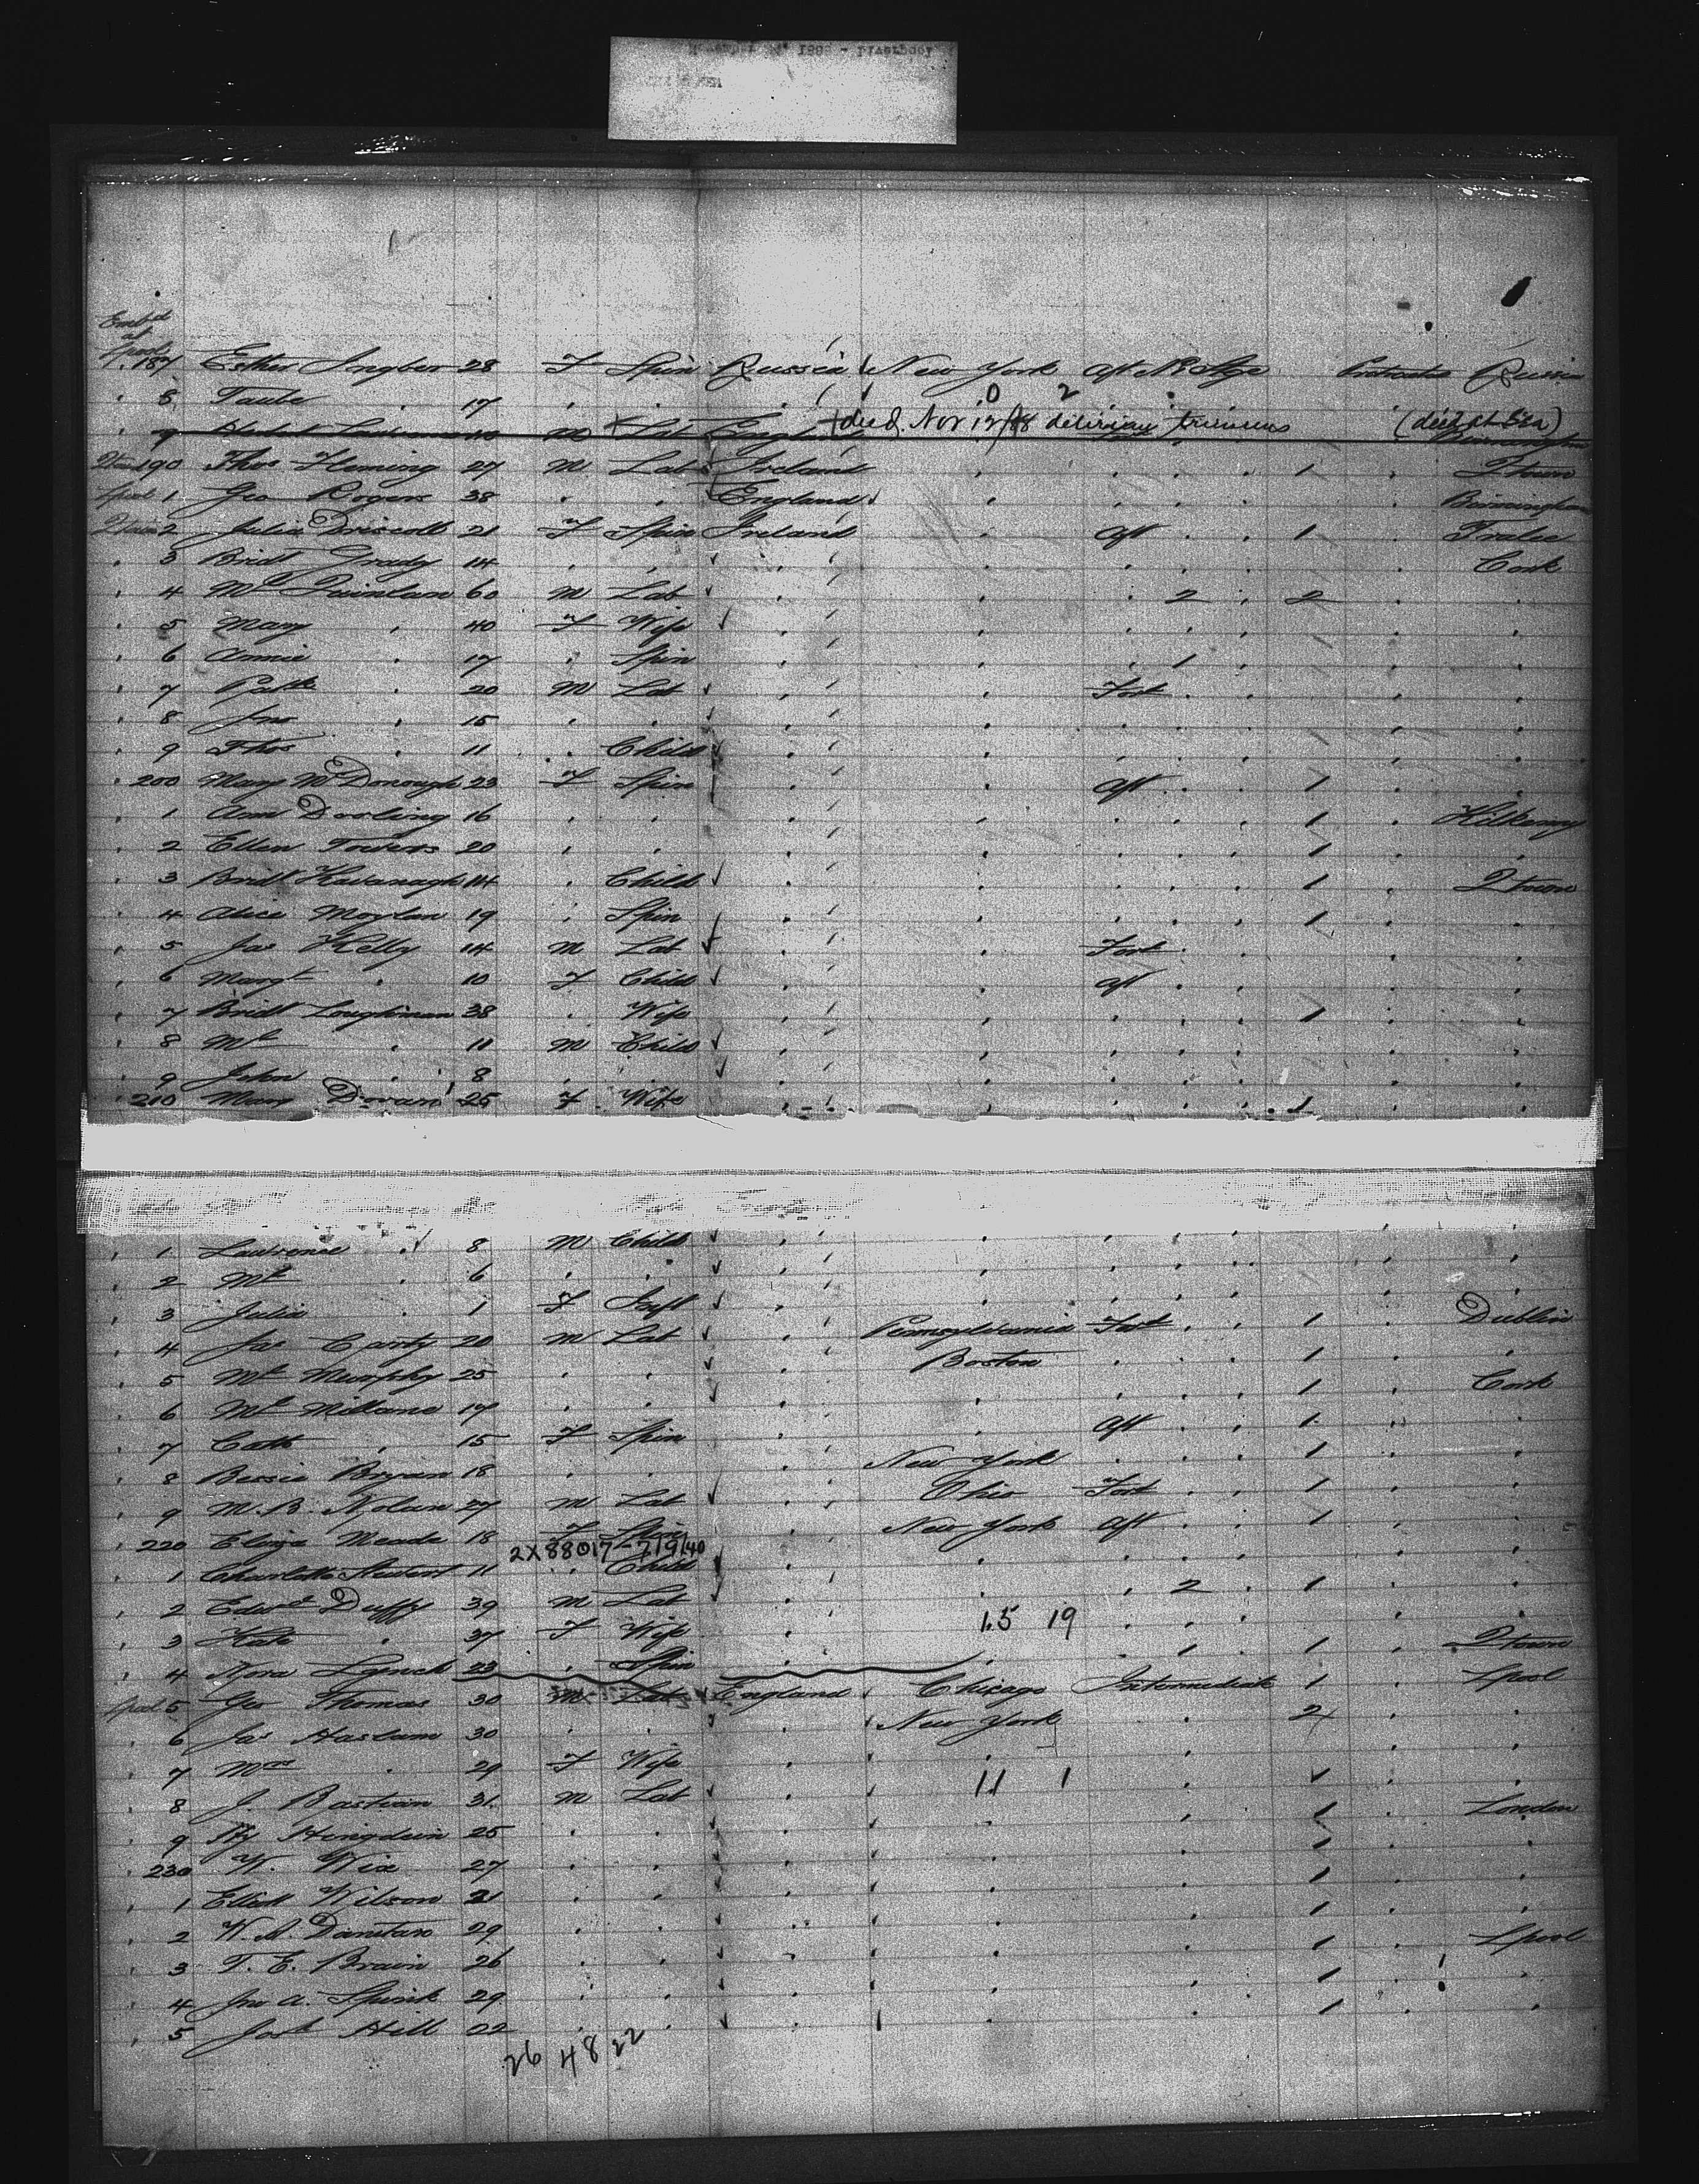 Emb'd
at
L'pool
187 Esther Ingber 28 F Spin Russia New York Aft Protracted Russia
8 Taube " 17 " " " " 0 2 " " "
9 M Lab England died Nov 12/88 (died at Sea) Birmingham
Q'town 190 Thos Fleming 27 M Lab Ireland " " " " 1 " Q'town
L'pool 1 Geo Rogers 38 " " England " Birmingham
Q'town 2 Julia Driscoll 21 F Spin Ireland " Aft " " 1 " Tralee
" 3 Bridt Grady 14 " " " " " " " " Cork
" 4 Ml Quinlan 60 M Lab " " " 2 " 2 " "
" 5 Mary " 40 F Wife " " " " " " "
" 6 Annie " 17 " Spin " " " 1 " " "
" 7 Patk " 20 M Lab " " Ford " " " "
" 8 Jno " 15 " " " " " " " " "
" 9 Thos " 11 " Child " " " " " " "
" 200 Mary McDonough 23 F Spin " " Aft " " 1 " "
" 1 Ann Dooling 16 " " " " " " " 1 " Kilkenny
" 2 Ellen 20 " " " " " " " 1 " "
" 3 Bridt Kavanagh 14 " Child " " " " " 1 " Q'town
" 4 Alice Moylan 19 " Spin " " " " " 1 " "
" 5 Jas Kelly 14 M Lab " " Ford " " " "
" 6 Margt " 10 F Child " " Aft " " " "
" 7 Bridt Loughman 38 " Wife " " " " " 1 " "
" 8 Ml " 11 M Child " " " " " " "
" 9 John " 8 " " " " " " " " "
" 210 Mary Doran 25 F Wife " " " " " 1 " "
" 1 Lawrence " 8 M Child " " " " " " "
" 2 Ml " 6 " " " " " " " " "
" 3 Julia " 1 F Inft " " " " " " "
" 4 Jas Carty 20 M Lab " Pennsylvania Ford " " 1 " Dublin
" 5 Ml Murphy 25 " " " Boston " " " 1 " "
" 6 Ml Millane 17 " " " " " " " 1 " Cork
" 7 Cath " 15 F Spin " " Aft " " 1 " "
" 8 Bessie Bryan 18 " " " New York " " " 1 " "
" 9 M. B. Nolan 27 M Lab " Ohio Ford " " 1 " "
" 220 Eliza Meade 18 F Spin " New York Aft " " 1 " "
2X88017-7/9/40
" 1 Charlotte 11 " Child " " " " " " "
" 2 Edwd Duffy 39 M Lab " " " 2 " 1 " "
" 3 Kate " 37 F Wife " 15 19 " " " " "
" 4 Nora Lynch 23 " Spin " " " 1 " 1 " Q'town
L'pool 5 Geo Thomas 30 M Lab England Chicago Intermediate 1 " L'pool
" 6 Jas Haslam 30 " " " New York " 2 " "
" 7 Mrs " 29 F Wife " " " " "
" 8 J. Bastian 31 M Lab " 11 1 " 1 " "
" 9 Hy 25 " " " " " 1 " London
" 230 W. Wix 27 " " " " " 1 " "
" 1 Elliott Wilson 21 " " " " " 1 " "
" 2 W. A. Dunstan 29 " " " " " 1 " "
" 3 T. E. Brain 26 " " " " " 1 " L'pool
" 4 Jno A. Spink 29 " " " " " 1 " "
" 5 Josh Hill 22 " " " " " 1 " "
26 48 22